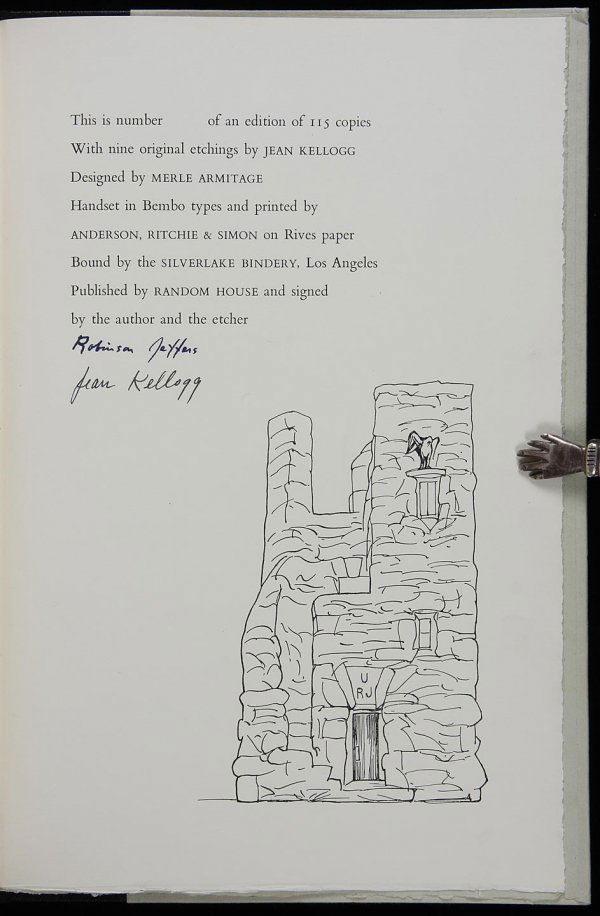 This is number of an edition of 115 copies
With nine original etchings by JEAN KELLOGG
Designed by MERLE ARMITAGE
Handset in Bembo types and printed by
ANDERSON, RITCHIE & SIMON on Rives paper
Bound by the SILVERLAKE BINDERY, Los Angeles
Published by RANDOM HOUSE and signed
by the author and the etcher
Robinson Jeffers
Jean Kellogg
U
RJ